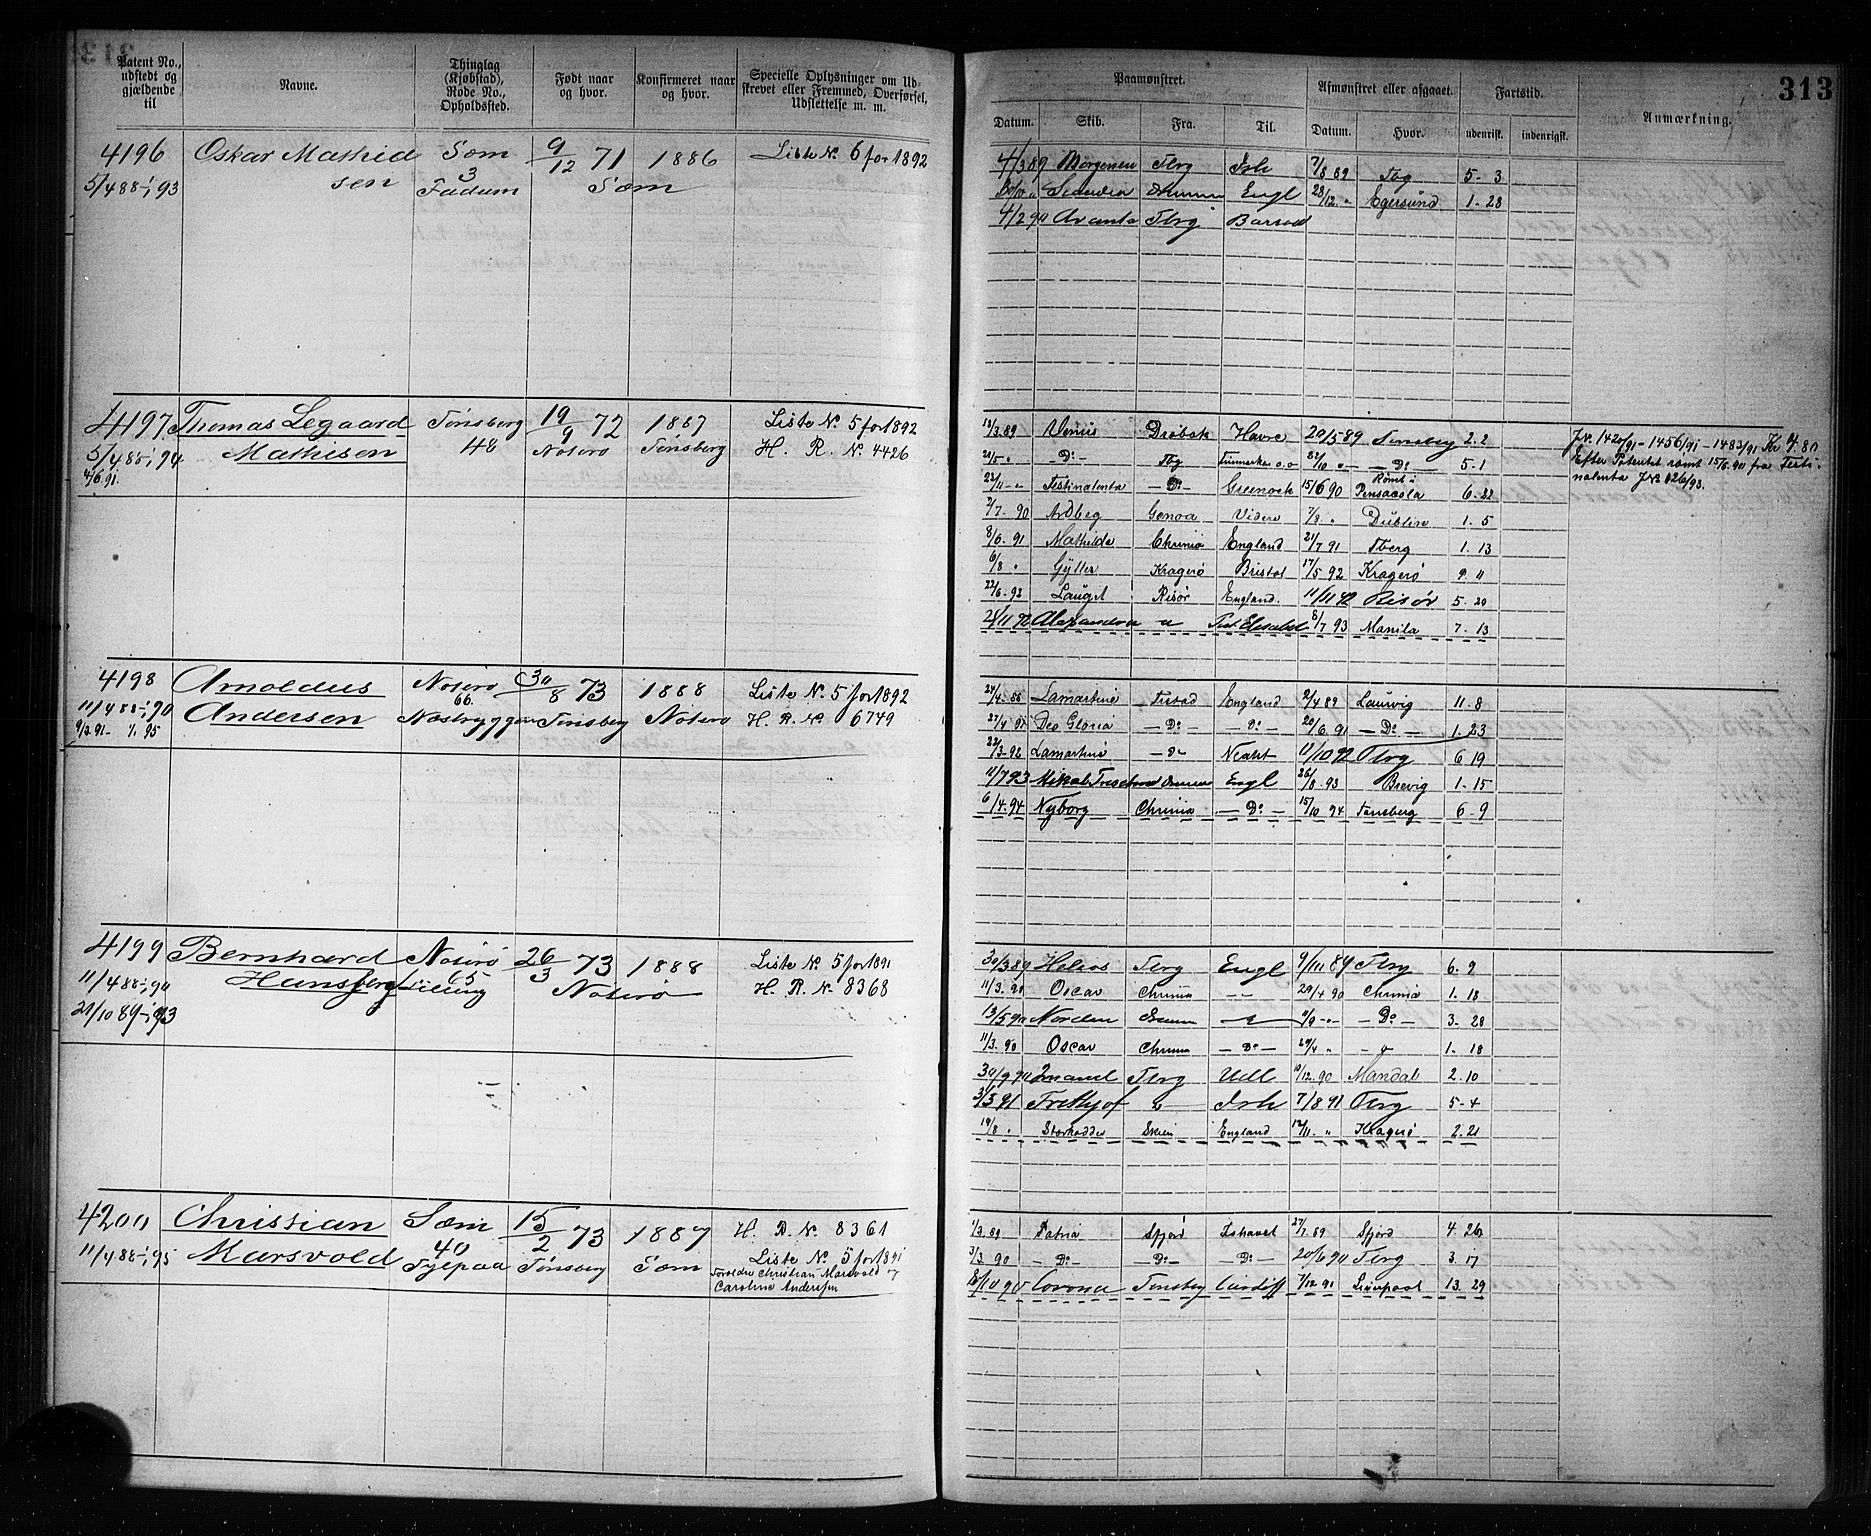 313
Patent No., udstedt og gjældende til
Navne.
Thinglag (Kjøbstad), Rode No., Opholdssted.
Født naar og hvor.
Konfirmeret naar og hvor.
Specielle Oplysninger om Udskrevet eller Fremmed, Overførsel, Udslettelse m. m.
Paamønstret.
Afmønstret eller afgaaet.
Fartstid.
Anmærkning.
Datum. Skib. Fra. Til. Datum. Hvor. udenrigsk. indenrigsk.
4196 Oskar Mathid Sem 9/12 71 1886 Liste No. 6 for 1892
5/4 88-1/93 sen 3 Fadum Sæm
4/3 89 Morgenen Tbrg Ish 7/8 89 Tbg 5-3
Engl 28/12 " Egersund 1-28
4/2 90 Avanta Tbrg
4197 Thomas Legaard Tønsberg 19/9 72 1887 Liste No. 5 for 1892
5/4 88-1/94 Mathisen 48 Nøterø Tønsberg H. R. No. 4426
4/6 91
13/3 89 Venus Drøbak Havre 20/5 89 Tønsberg 2-2
J.N. 1420/91 - 1456/91 - 1483/91 Kr 4.80
— Do — Tbg — Do — 5-1
Efter Patentet rømt 15/6 90 fra Testi-
Testinalenta — Do — Greenock 15/6 90 Rømt i Pensacola 6-22
nalenta
2/7 90 Ardbeg Genoa Videre Dublin 1-5
8/6 91 Mathilde Chrnia England 21/7 91 Tberg 1-13
6/8 " Gyller Kragerø Bristol 17/5 92 Kragerø 9-11
22/6 92 Lauget Risør England 11/11 92 Risør 5-20
Alexandra " Port Elisabet 8/7 93 Manila 7-13
4198 Arnoldus Nøterø 30/8 73 1888 Liste No. 5 for 1892
11/4 88-1/90 Andersen 66. Tønsberg Nøterø H. R. No. 6749
24/4 88 Lamartine England 2/4 89 Laurvig 11-8
Deo Gloria — Do — — Do — 20/6 91 — Do — 1-23
22/3 92 Lamartine — Do — 11/10 92 Tbrg 6 19
11/7 93 Engl 26/8 93 Brevig 1-15
6/4 94 Nyborg Chrnia — Do — 15/10 94 Tønsberg 6-9
4199 Bernhard Nøterø 26/3 73 1888 Liste No. 5 for 1891
11/4 88-1/90 65 Nøterø H. R. No. 8368
21/10 89-1/93
30/3 89 Helios Tbrg Engl 9/11 89 Tbrg 6-9
11/3 90 Oscar Chrnia — 29/4 90 Chrnia 1-18
13/5 90 Norden — Do — 3-28
11/3 90 Oscar Chrnia — Do — 29/4 " 1-18
30/9 90 Tbrg Udl 10/12 90 Mandal 2-10
3/3 91 Frithjof Ish 7/8 91 Tbrg 5-4
19/8 " Størkodder Skien England 12/11 " Kragerø 2-21
4200 Christian Sæm 15/2 73 1887 H. R. No. 8361
11/4 88-1/95 Marsvold 40 Tønsberg Sæm Liste No. 5 for 1891
Forældre Christian Marsvold og
Caroline Andersen
1/3 89 Patria Sfjord Ishavet 27/7 89 Sfjord 4-26
3/3 90 — Do — — Do — — Do — 20/6 90 Tbrg 3-17
Corona Tønsberg Cardiff 7/12 91 Liverpool 13-29